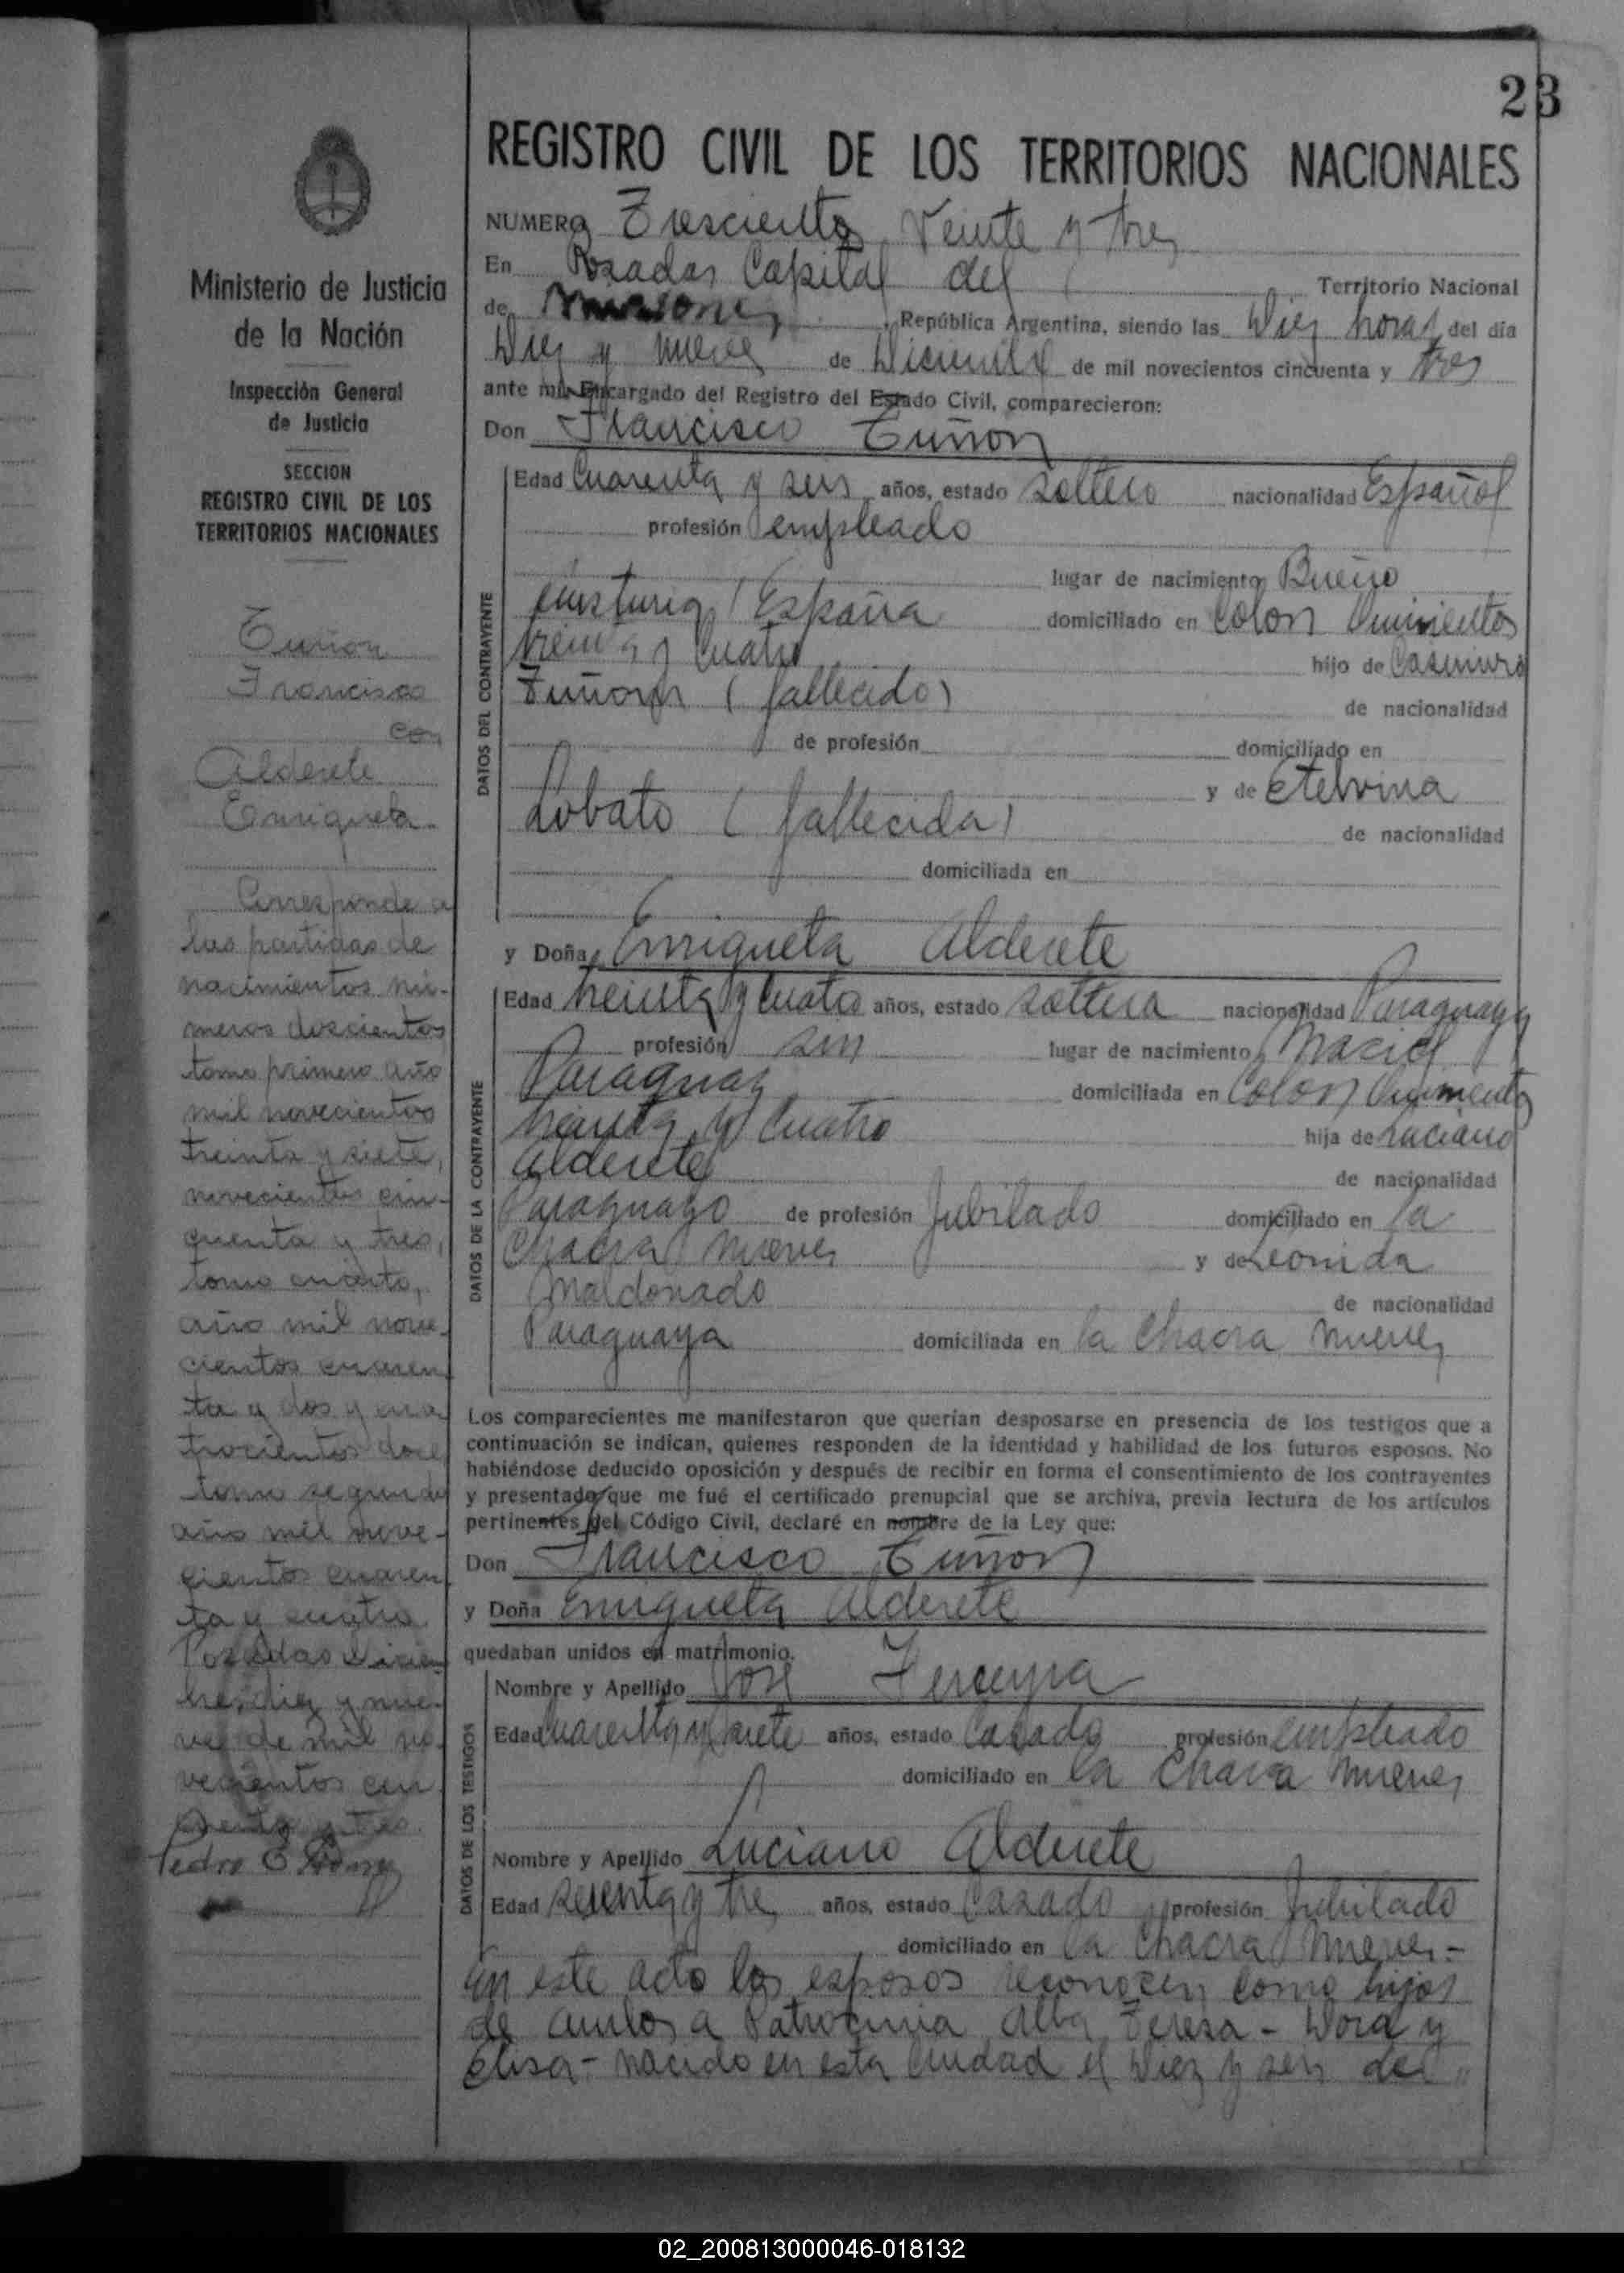 23
REGISTRO CIVIL DE LOS TERRITORIOS NACIONALES
Ministerio de Justicia
de la Nación
Inspección General
de Justicia
SECCION
REGISTRO CIVIL DE LOS
TERRITORIOS NACIONALES
Tuñon
Francisco
con
Alderete
Enriqueta.
Corresponde a
las partidas de
nacimientos nú-
meros doscientos
tomo primero año
mil novecientos
treinta y siete,
novecientos cin-
cuenta y tres,
tomo cuarto,
año mil nove-
cientos cuaren
ta y dos y cua
trocientos doce
tomo segundo
año mil nove-
cientos cuaren
ta y cuatro.
Posadas Diciem
bre, diez y nue-
ve de mil no-
vecientos cin
cuenta y tres.
Pedro E.
NUMERO Trescientos Veinte y tres
En Posadas Capital del Territorio Nacional
de Misiones, República Argentina, siendo las Diez horas del día
Diez y nueve de Diciembre de mil novecientos cincuenta y tres
ante mí, Encargado del Registro del Estado Civil, comparecieron:
Don Francisco Tuñon
DATOS DEL CONTRAYENTE
Edad Cuarenta y seis años, estado soltero nacionalidad Español
profesión empleado
lugar de nacimiento
España domiciliado en Colon Quinientos
treinta y Cuatro hijo de Casimiro
Tuñon (fallecido) de nacionalidad
de profesión domiciliado en
y de Etelvina
Lobato (fallecida) de nacionalidad
domiciliada en
y Doña Enriqueta Alderete
DATOS DE LA CONTRAYENTE
Edad treinta y Cuatro años, estado soltera nacionalidad Paraguaya
profesión sin lugar de nacimiento Maciel
Paraguay domiciliada en Colon Quinientos
treinta y Cuatro hija de Luciano
Alderete de nacionalidad
Paraguayo de profesión Jubilado domiciliado en la
Chacra nueve, y de Leonida
Maldonado de nacionalidad
Paraguaya domiciliada en la Chacra nueve,
Los comparecientes me manifestaron que querían desposarse en presencia de los testigos que a
continuación se indican, quienes responden de la identidad y habilidad de los futuros esposos. No
habiéndose deducido oposición y después de recibir en forma el consentimiento de los contrayentes
y presentado que me fué el certificado prenupcial que se archiva, previa lectura de los artículos
pertinentes del Código Civil, declaré en nombre de la Ley que:
Don Francisco Tuñon
y Doña Enriqueta Alderete
quedaban unidos en matrimonio.
DATOS DE LOS TESTIGOS
Nombre y Apellido José Ferreyra
Edad Cuarenta y siete años, estado Casado profesión empleado
domiciliado en la Chacra nueve,
Nombre y Apellido Luciano Alderete
Edad sesenta y tres años, estado Casado profesión Jubilado
domiciliado en la Chacra nueve.-
En este acto los esposos reconocen como hijos
de ambos a Patrocinia, Alba Teresa - Dora y
Elisa - nacido en esta Ciudad el diez y seis de
02_200813000046-018132